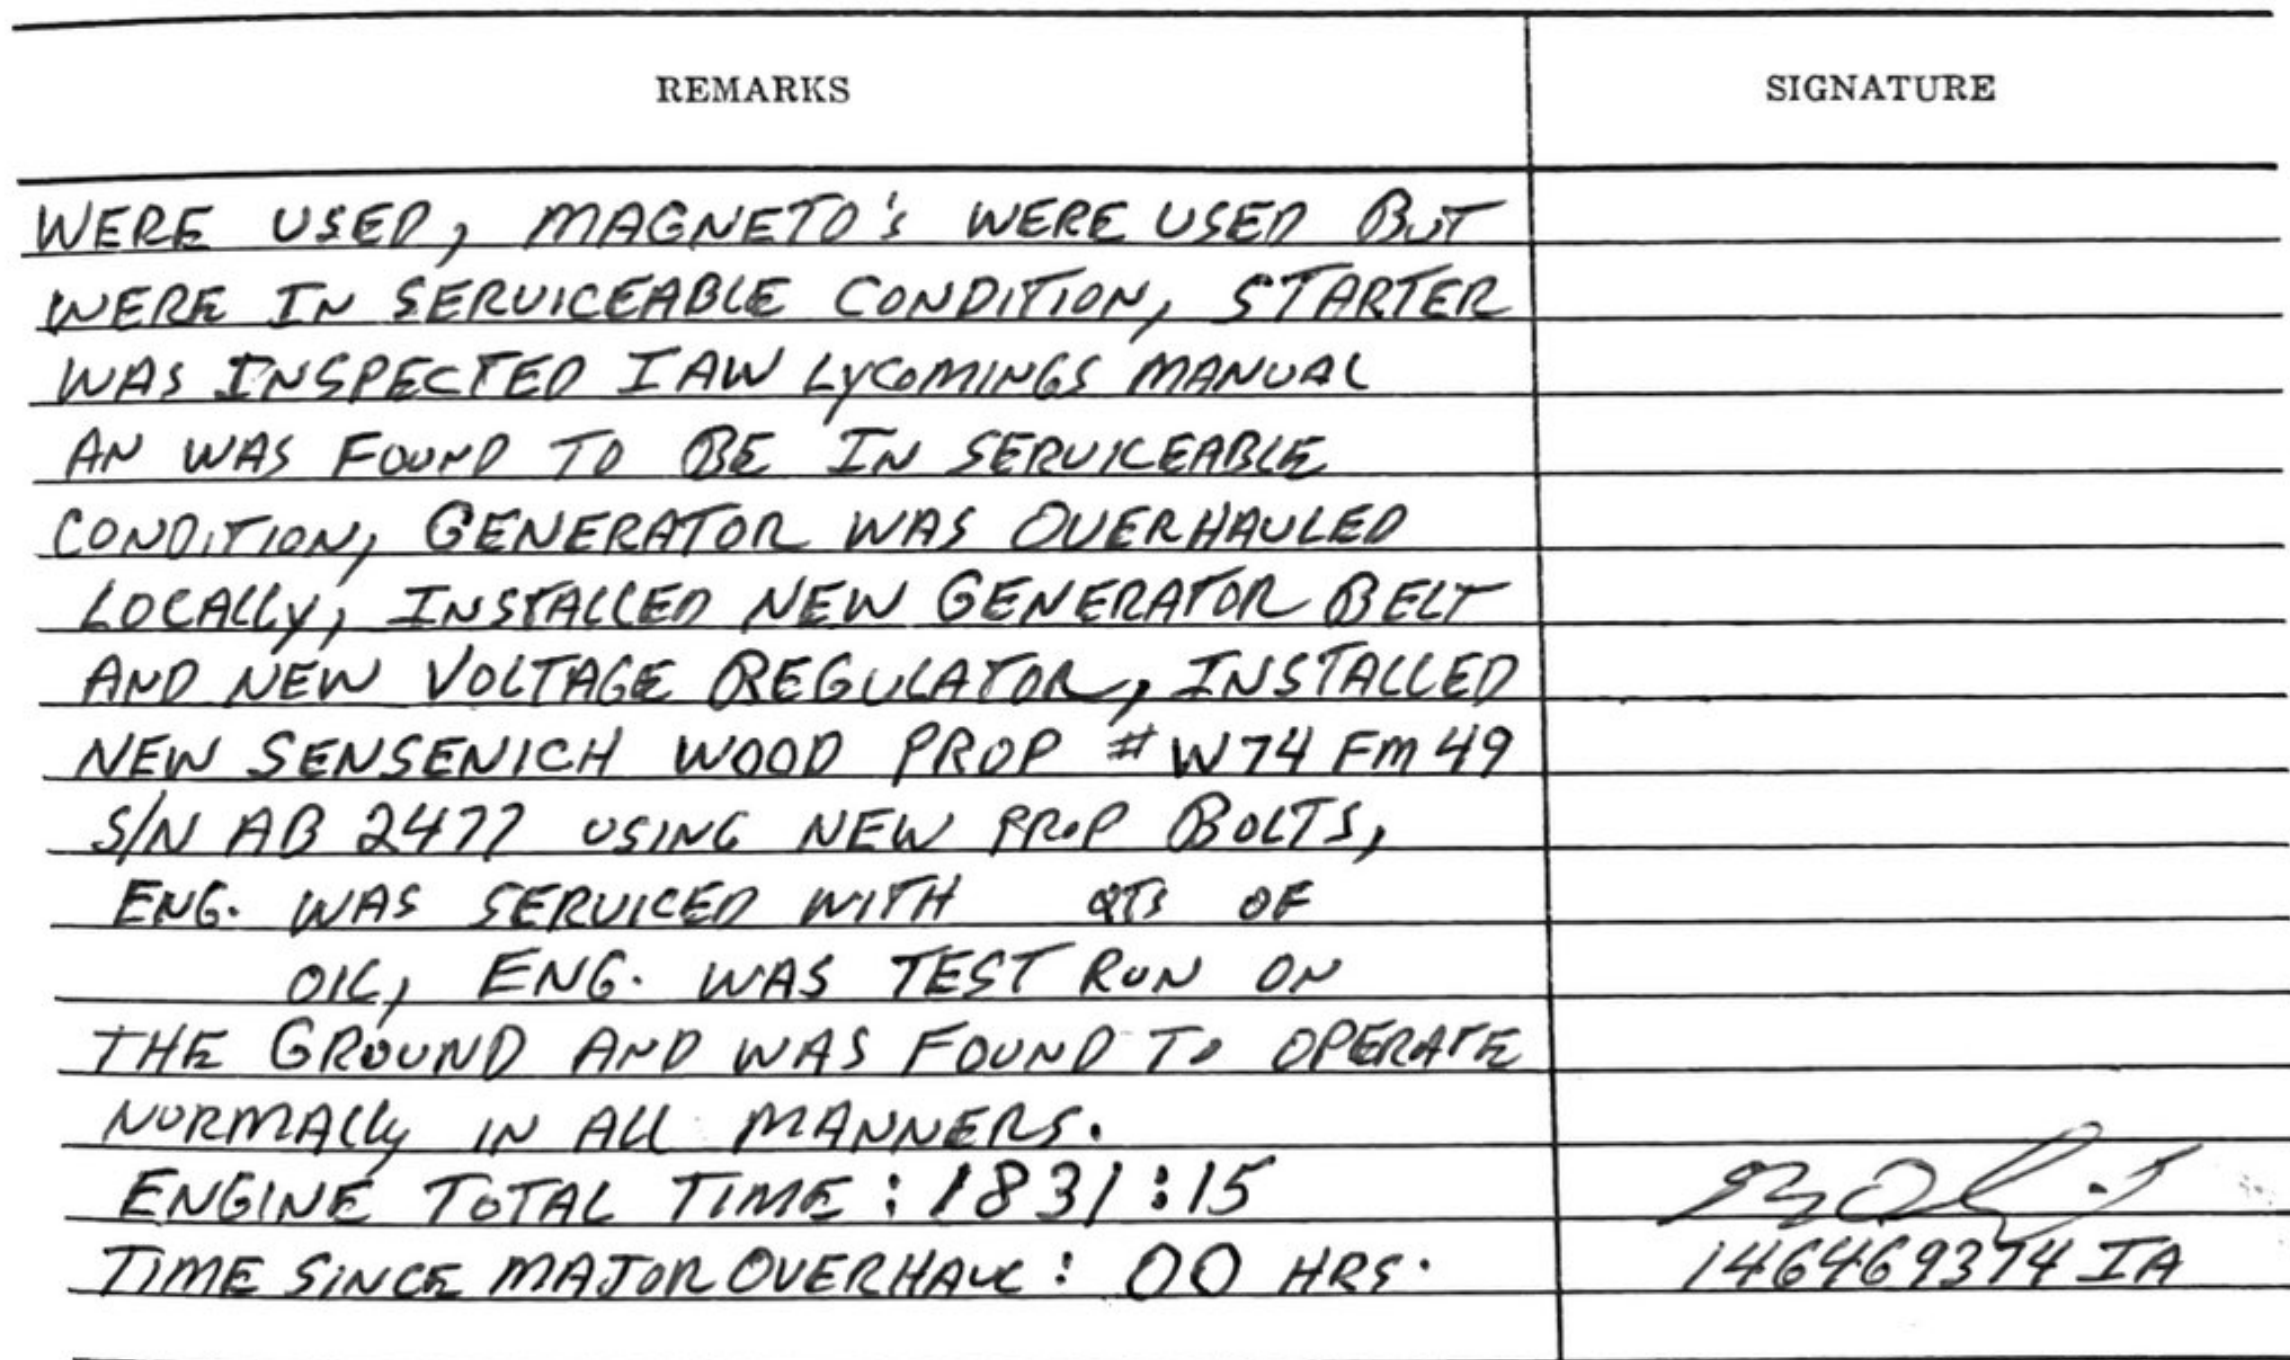 REMARKS
SIGNATURE
WERE USED, MAGNETO'S WERE USED BUT
WERE IN SERVICEABLE CONDITION, STARTER
WAS INSPECTED IAW LYCOMINGS MANUAL
AN WAS FOUND TO BE IN SERVICEABLE
CONDITION, GENERATOR WAS OVERHAULED
LOCALLY, INSTALLED NEW GENERATOR BELT
AND NEW VOLTAGE REGULATOR, INSTALLED
NEW SENSENICH WOOD PROP # W74 FM 49
S/N AB 2477 USING NEW PROP BOLTS,
ENG. WAS SERVICED WITH QTS OF
OIL, ENG. WAS TEST RUN ON
THE GROUND AND WAS FOUND TO OPERATE
NORMALLY IN ALL MANNERS.
ENGINE TOTAL TIME : 1831:15
TIME SINCE MAJOR OVERHAUL : 00 HRS.
146469374 IA